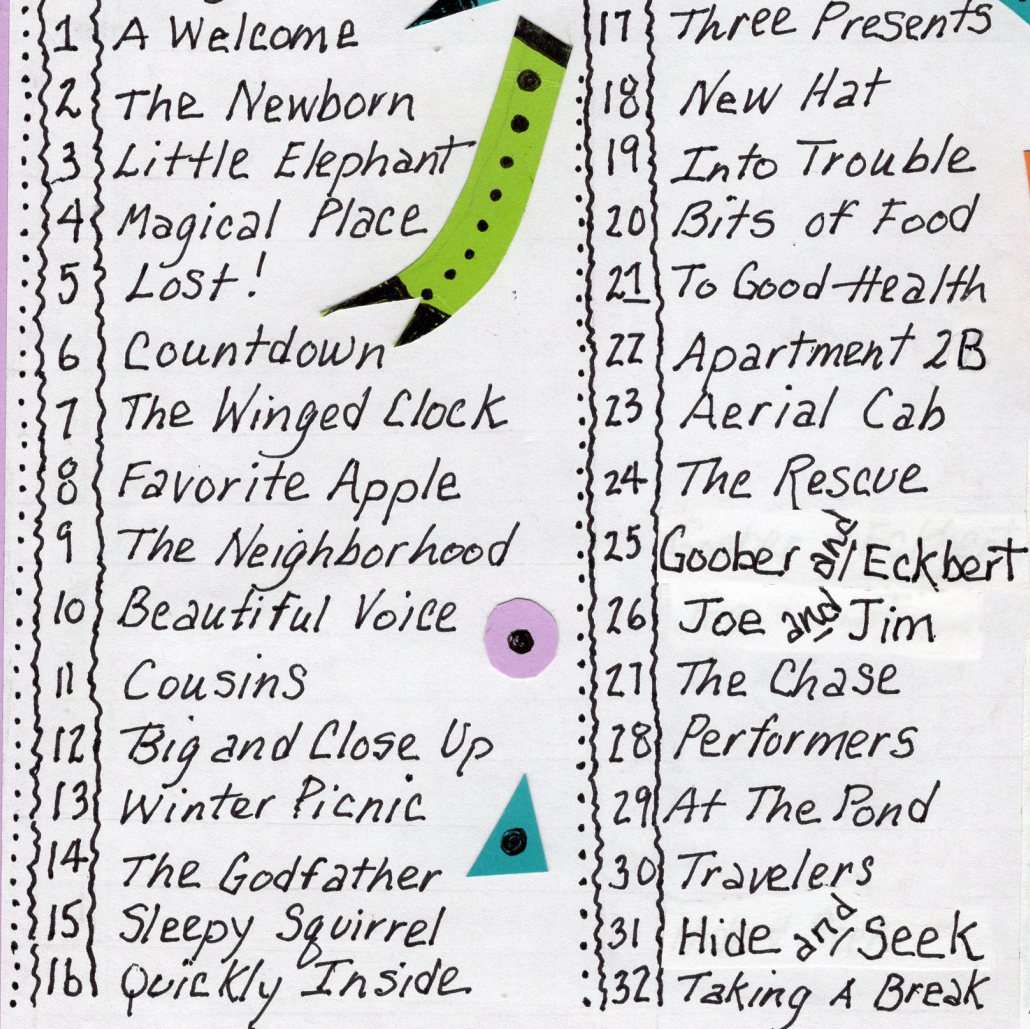 1 A Welcome
2 The Newborn
3 Little Elephant
4 Magical Place
5 Lost!
6 Countdown
7 The Winged Clock
8 Favorite Apple
9 The Neighborhood
10 Beautiful Voice
11 Cousins
12 Big and Close Up
13 Winter Picnic
14 The Godfather
15 Sleepy Squirrel
16 Quickly Inside
17 Three Presents
18 New Hat
19 Into Trouble
20 Bits of Food
21 To Good Health
22 Apartment 2B
23 Aerial Cab
24 The Rescue
25 Goober and Eckbert
26 Joe and Jim
27 The Chase
28 Performers
29 At The Pond
30 Travelers
31 Hide and Seek
32 Taking A Break